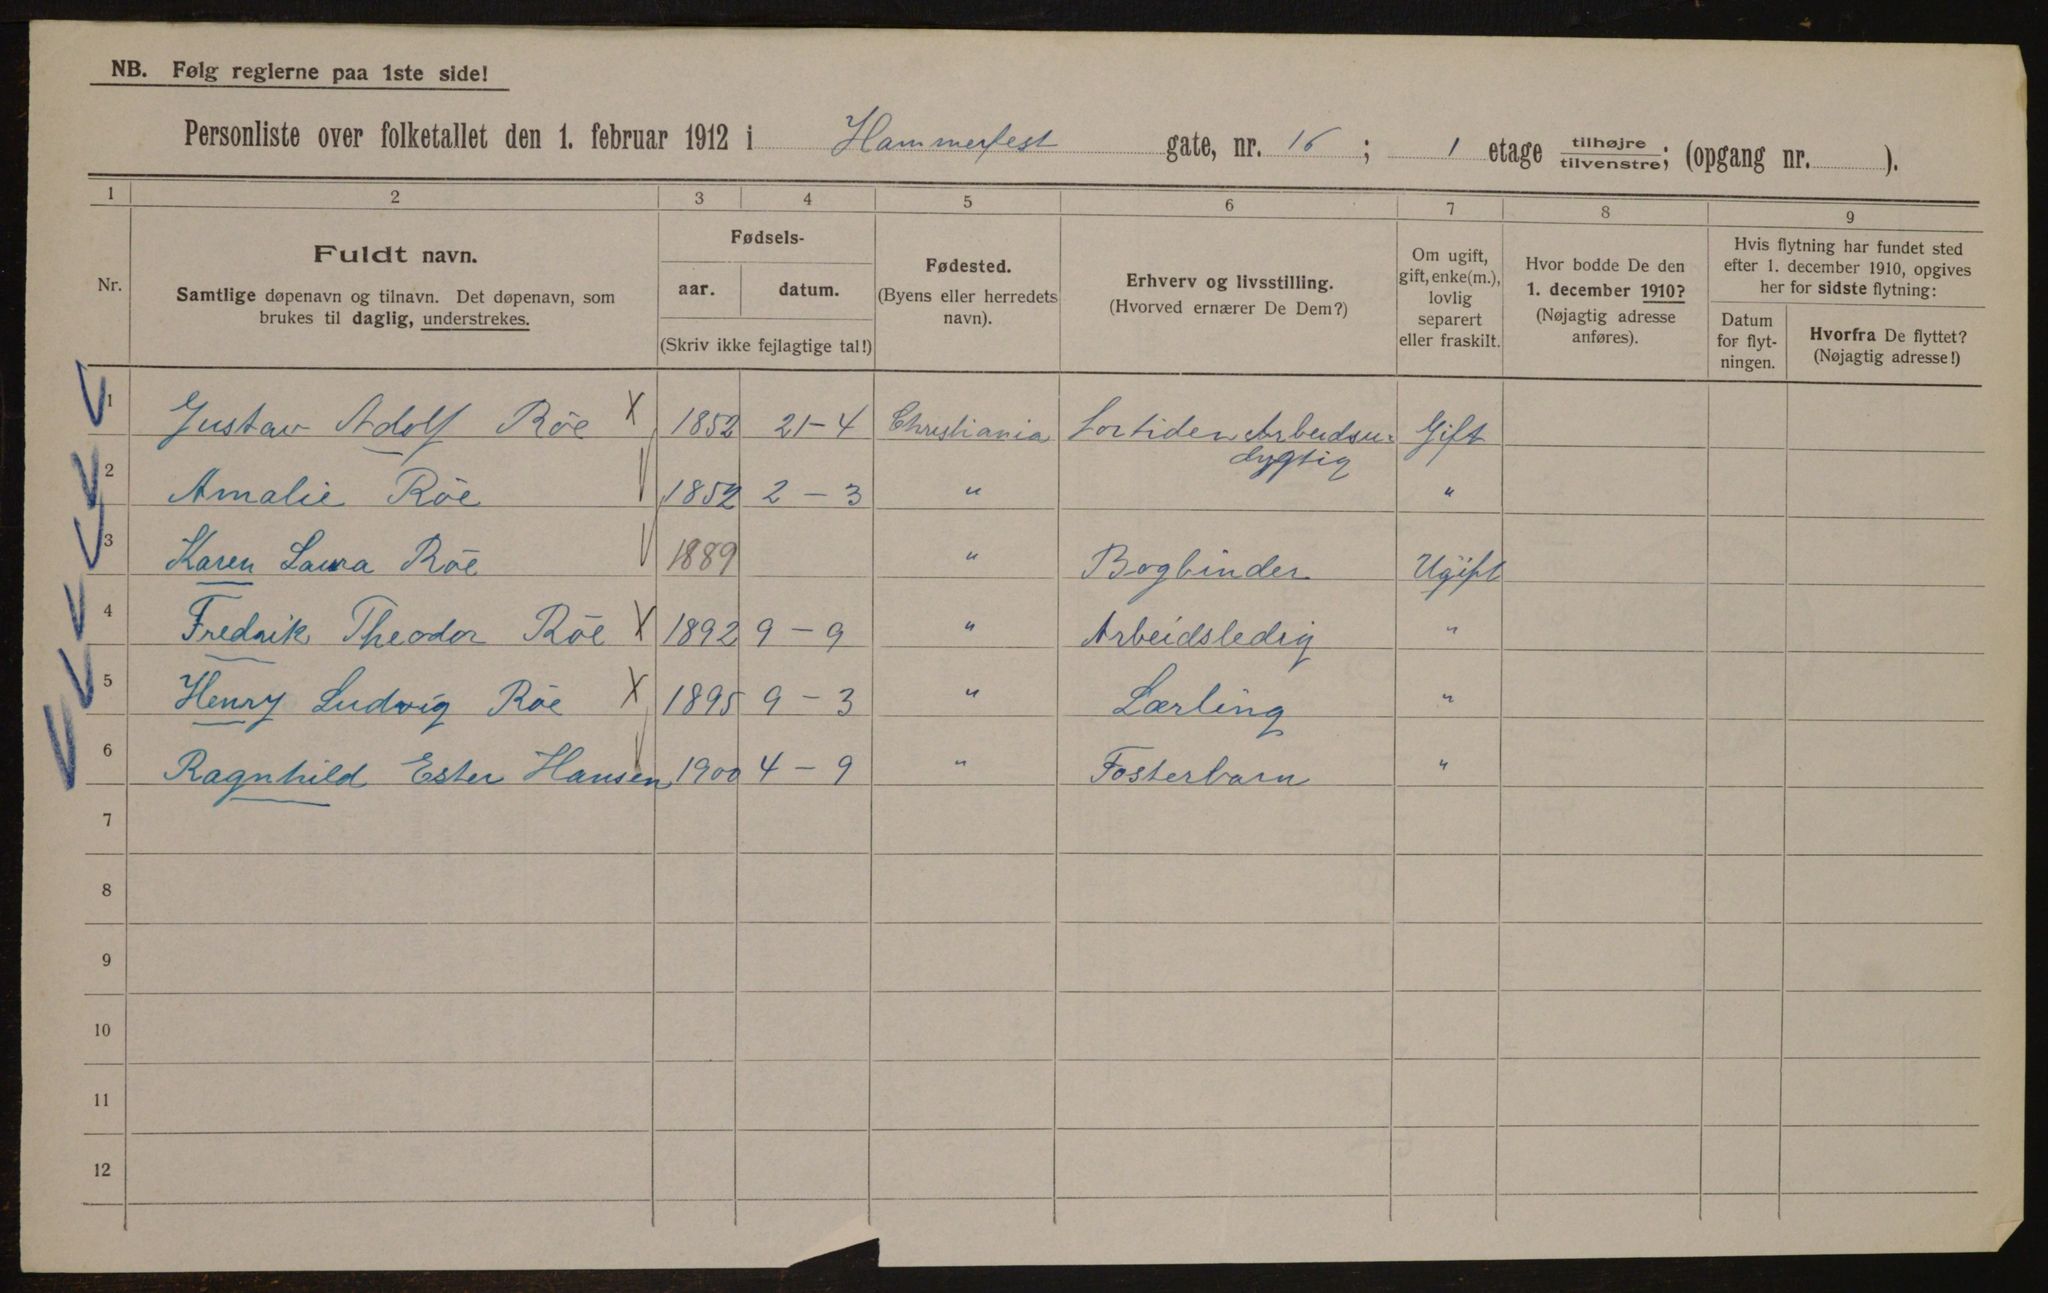 NB. Følg reglerne paa 1ste side!
Personliste over folketallet den 1. februar 1912 i Hammerfest gate, nr. 16; 1 etage tilhøjre/tilvenstre; (opgang nr. ).
1 2 3 4 5 6 7 8 9
Nr.
Fuldt navn.
Samtlige døpenavn og tilnavn. Det døpenavn, som
brukes til daglig, understrekes.
Fødsels-
aar. datum.
(Skriv ikke fejlagtige tal!)
Fødested.
(Byens eller herredets
navn).
Erhverv og livsstilling.
(Hvorved ernærer De Dem?)
Om ugift,
gift, enke(m.),
lovlig
separert
eller fraskilt.
Hvor bodde De den
1. december 1910?
(Nøjagtig adresse
anføres).
Hvis flytning har fundet sted
efter 1. december 1910, opgives
her for sidste flytning:
Datum
for flyt-
ningen.
Hvorfra De flyttet?
(Nøjagtig adresse!)
1 Gustav Adolf Röe X 1852 21-4 Christiania Fortiden Arbeidsu-
dygtig Gift
2 Amalie Röe 1852 2-3 " "
3 Karen Laura Röe 1889 " Bogbinder Ugift
4 Fredrik Theodor Röe X 1892 9-9 " Arbeidsledig "
5 Henry Ludvig Röe X 1895 9-3 " Lærling "
6 Ragnhild Ester Hansen 1900 4-9 " Fosterbarn "
7
8
9
10
11
12